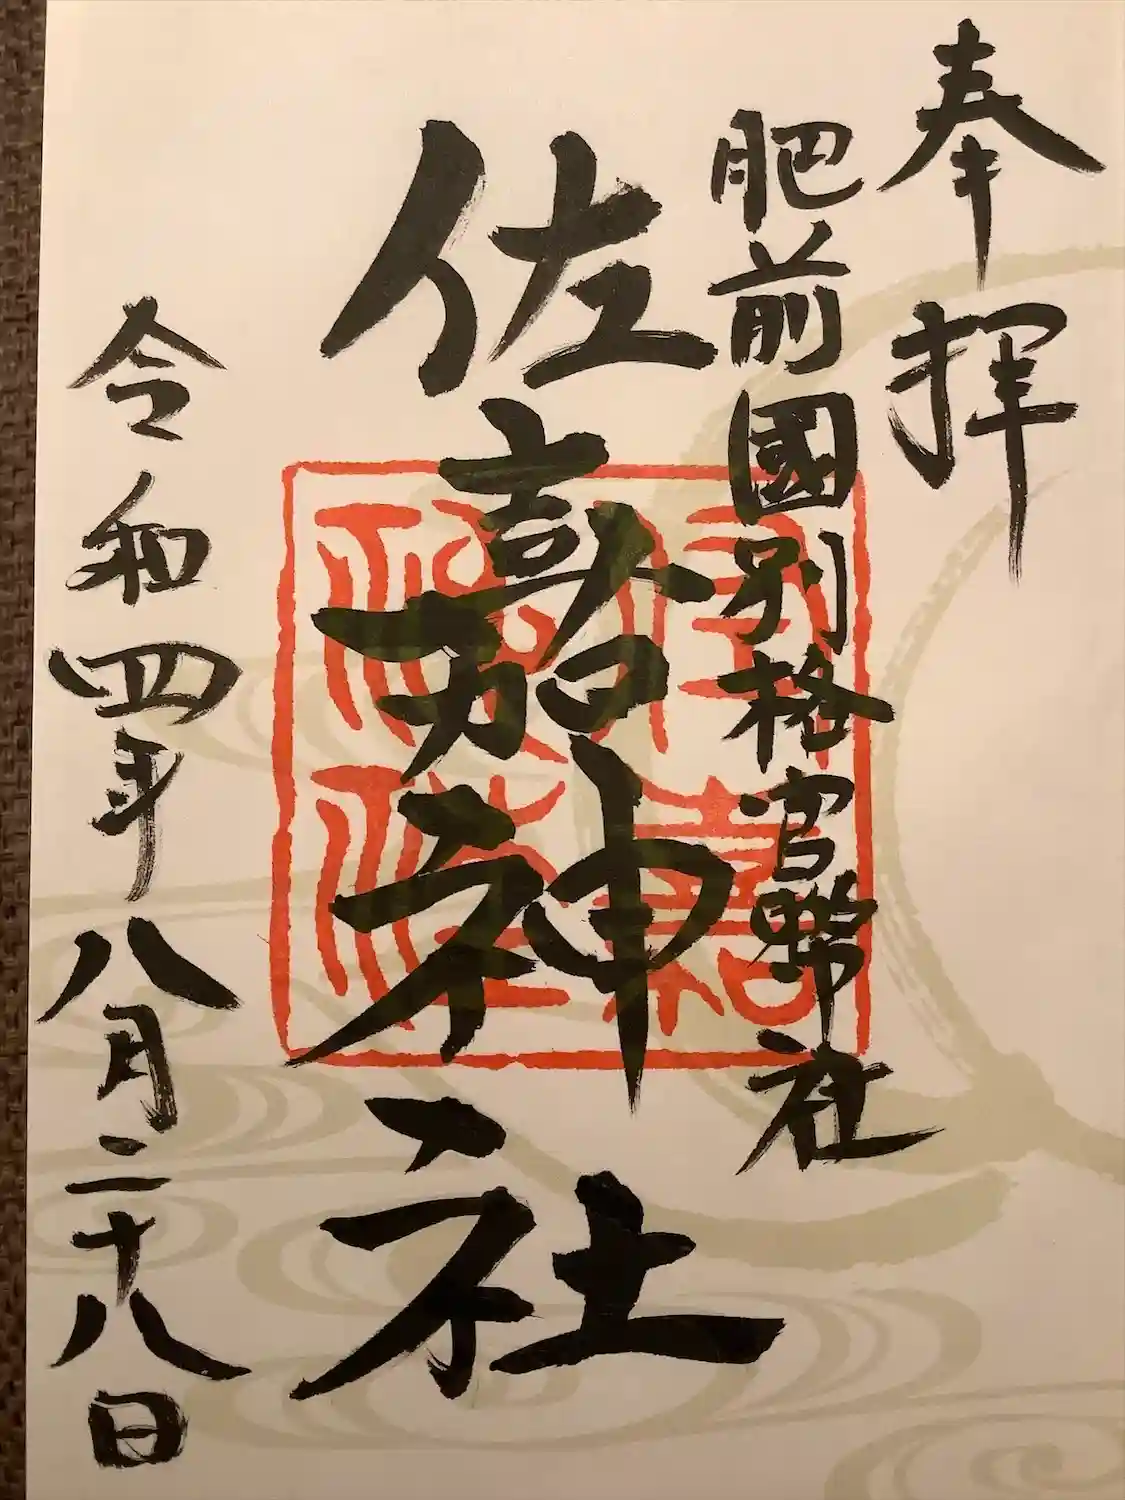 奉拝
肥前國別格官幣社
佐嘉神社
令和四年八月二十八日
佐嘉
神社